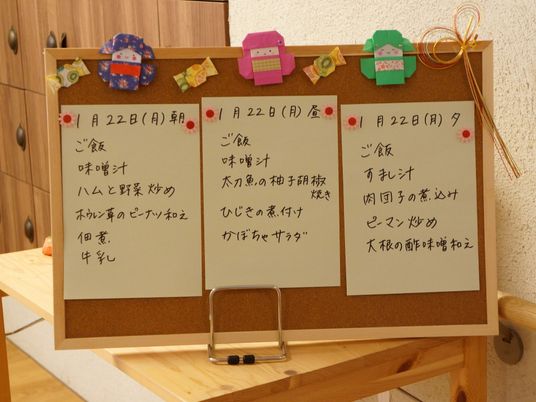 1月22日(月)朝
ご飯
味噌汁
ハムと野菜炒め
ホウレン草のピーナツ和え
佃煮
牛乳
1月22日(月)昼
ご飯
味噌汁
太刀魚の柚子胡椒
焼き
ひじきの煮付け
かぼちゃサラダ
1月22日(月)夕
ご飯
すまし汁
肉団子の煮込み
ピーマン炒め
大根の酢味噌和え